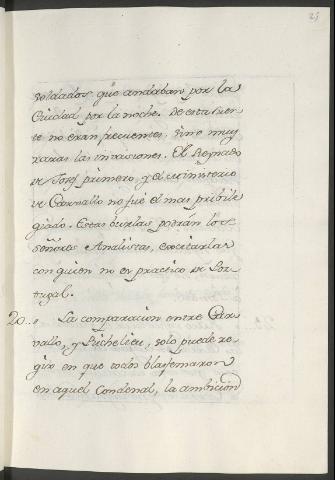 21
soldados que andaban por la
Ciudad por la noche. De esta suer-
te no eran frecuentes, sino muy
raras las invasiones. El Reynado
de Josef primero, y el Ministerio
de Carvallo no fué el mas pribile-
giado. Estas burlas podrán los
señores Analistas, escritarlas
con quien no es practico de Por-
tugal.
20.. La comparacion entre Car-
vallo, y Richelieu, solo puede re-
gir en que todos blasfemaron
en aquel Condenal, la ambicion